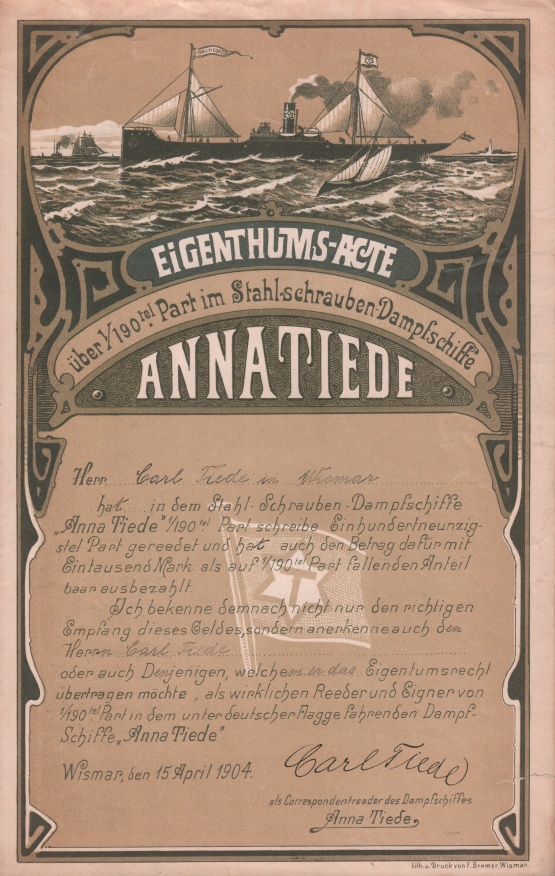 ANNA TIEDE
EiGENTHUMS-ACTE
über 1/190tel Part im Stahl-schrauben-Dampfschiffe
ANNA TIEDE
Herr Carl Tiede in Wismar
hat in dem Stahl-Schrauben-Dampfschiffe
„Anna Tiede" 1/190tel Part schreibe Einhundertneunzig-
stel Part gereedet und hat auch den Betrag dafür mit
Eintausend Mark als auf 1/190tel Part fallenden Anteil
baar ausbezahlt.
Ich bekenne demnach nicht nur den richtigen
Empfang dieses Geldes, sondern anerkenne auch den
Herrn Carl Tiede
oder auch Denjenigen, welchem er das Eigentumsrecht
übertragen möchte, als wirklichen Reeder und Eigner von
1/190tel Part in dem unter deutscher Flagge fahrenden Dampf-
Schiffe „Anna Tiede"
Wismar, den 15 April 1904.
Carl Tiede
als Correspondentreeder des Dampfschiffes
Anna Tiede.
T
Lith. u. Druck von F. Bremer, Wismar.